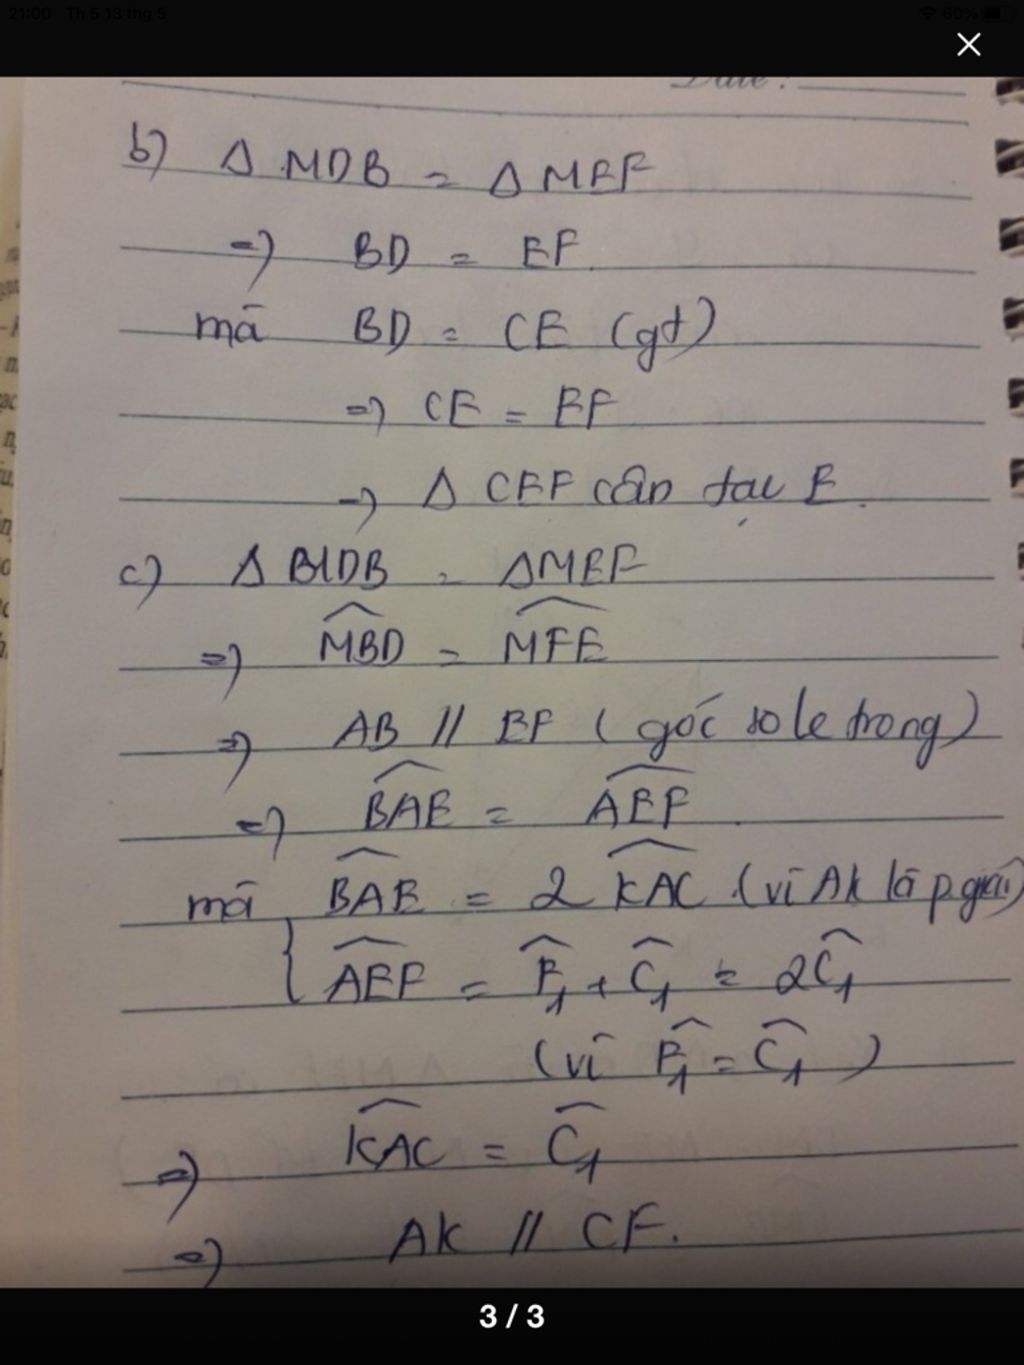 21:00 Th 5 13 thg 5
60%
Date:
b) Δ MDB = Δ MEF
=) BD = EF
mà BD = CE (gt)
=) CE = EF
=) Δ CEF cân tại E.
c) Δ MDB = ΔMEF
=) \widehat{MBD} = \widehat{MFE}
=) AB // EF ( góc so le trong)
=) \widehat{BAE} = \widehat{AEF}.
mà \widehat{BAE} = 2 \widehat{KAC} (vì Ak là p.giác)
{ \widehat{AEF} = \widehat{F_1} + \widehat{C_1} = 2\widehat{C_1}
(vì \widehat{F_1} = \widehat{C_1} )
=) \widehat{KAC} = \widehat{C_1}
=) AK // CF.
3 / 3